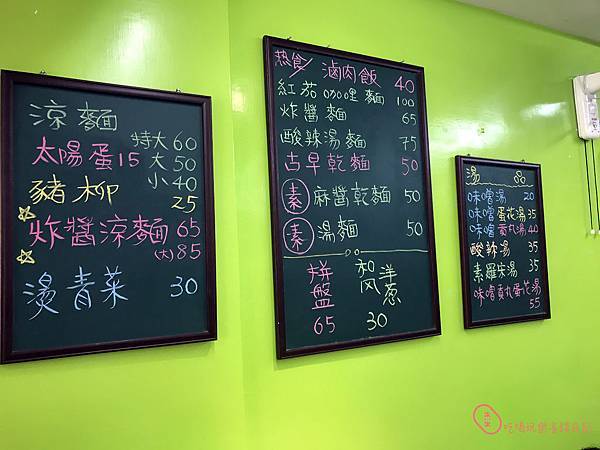 涼麵 特大60
太陽蛋15 大50
小40
豬柳 25
炸醬涼麵 65
(大)85
燙青菜 30
热食/ 滷肉飯 40
紅茄咖哩麵 100
炸醬麵 65
酸辣湯麵 75
古早乾麵 50
素 麻醬乾麵 50
素 湯麵 50
拼盤 65
和風洋蔥 30
湯品
味噌湯 20
味噌蛋花湯 35
味噌貢丸湯 40
酸辣湯 35
素羅宋湯 35
味噌貢丸蛋花湯
55